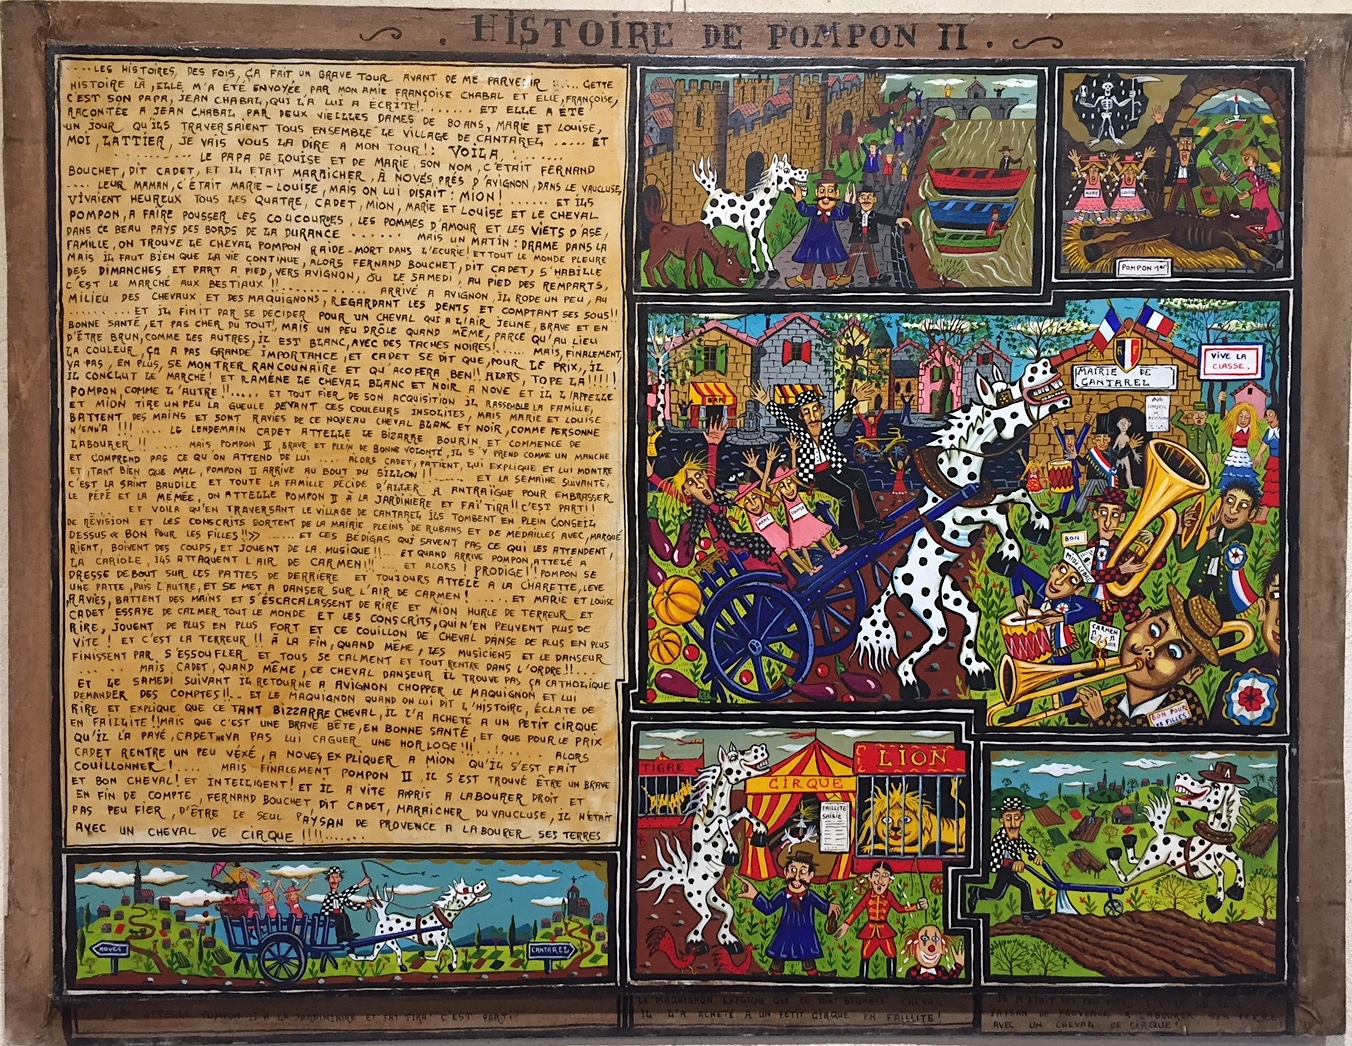 HISTOIRE DE POMPON II.
....LES HISTOIRES, DES FOIS, ÇA FAIT UN BRAVE TOUR AVANT DE ME PARVENIR !.... CETTE
HISTOIRE LÀ, ELLE M'A ÉTÉ ENVOYÉE PAR MON AMIE FRANÇOISE CHABAL ET ELLE, FRANÇOISE,
C'EST SON PAPA, JEAN CHABAL, QUI L'A LUI A ÉCRITE!........ ET ELLE A ÉTÉ
RACONTÉE A JEAN CHABAL PAR DEUX VIEILLES DAMES DE 80 ANS, MARIE ET LOUISE,
UN JOUR QU'ILS TRAVERSAIENT TOUS ENSEMBLE LE VILLAGE DE CANTAREL ..... ET
MOI, LATTIER, JE VAIS VOUS LA DIRE A MON TOUR!! VOILA,......
........... LE PAPA DE LOUISE ET DE MARIE, SON NOM, C'ÉTAIT FERNAND
BOUCHET, DIT CADET, ET IL ETAIT MARAICHER, À NOVÉS PRÈS D'AVIGNON, DANS LE VAUCLUSE,
.... LEUR MAMAN, C'ÉTAIT MARIE-LOUISE, MAIS ON LUI DISAIT: MION! ...... ET ILS
VIVAIENT HEUREUX TOUS LES QUATRE, CADET, MION, MARIE ET LOUISE ET LE CHEVAL
POMPON, A FAIRE POUSSER LES COUCOURDES, LES POMMES D'AMOUR ET LES VIETS D'ASE,
DANS CE BEAU PAYS DES BORDS DE LA DURANCE ........ MAIS UN MATIN: DRAME DANS LA
FAMILLE, ON TROUVE LE CHEVAL POMPON RAIDE-MORT DANS L'ÉCURIE! ET TOUT LE MONDE PLEURE
MAIS IL FAUT BIEN QUE LA VIE CONTINUE, ALORS FERNAND BOUCHET, DIT CADET, S'HABILLE
DES DIMANCHES ET PART A PIED, VERS AVIGNON, OÙ LE SAMEDI, AU PIED DES REMPARTS,
C'EST LE MARCHÉ AUX BESTIAUX !!............. ARRIVÉ A AVIGNON, IL RODE UN PEU, AU
MILIEU DES CHEVAUX ET DES MAQUIGNONS, REGARDANT LES DENTS ET COMPTANT SES SOUS!!
........ ET IL FINIT PAR SE DECIDER POUR UN CHEVAL QUI A L'AIR JEUNE, BRAVE ET EN
BONNE SANTÉ, ET PAS CHER DU TOUT!, MAIS UN PEU DRÔLE QUAND MÊME, PARCE QU'AU LIEU
D'ÊTRE BRUN, COMME LES AUTRES, IL EST BLANC, AVEC DES TACHES NOIRES!..... MAIS, FINALEMENT,
LA COULEUR, ÇA A PAS GRANDE IMPORTANCE, ET CADET SE DIT QUE, POUR LE PRIX, IL
VA PAS, EN PLUS, SE MONTRER RANCOUNAIRE ET QU'ACO FERA BEN!! ALORS, TOPE LÀ!!!!!
IL CONCLUT LE MARCHÉ! ET RAMÈNE LE CHEVAL BLANC ET NOIR A NOVÉ ET IL L'APPELLE
POMPON COMME L'AUTRE!!..... ET TOUT FIER DE SON ACQUISITION IL RASSEMBLE LA FAMILLE,
ET MION TIRE UN PEU LA GUEULE DEVANT CES COULEURS INSOLITES, MAIS MARIE ET LOUISE
BATTENT DES MAINS ET SONT RAVIES DE CE NOVEAU CHEVAL BLANC ET NOIR, COMME PERSONNE
N'EN A !!! .... LE LENDEMAIN CADET ATTELLE LE BIZARRE BOURIN ET COMMENCE DE
LABOURER !! .... MAIS POMPON II BRAVE ET PLEIN DE BONNE VOLONTÉ, IL S'Y PREND COMME UN MANCHE
ET COMPREND PAS CE QU'ON ATTEND DE LUI .... ALORS CADET, PATIENT, LUI EXPLIQUE ET LUI MONTRE
ET, TANT BIEN QUE MAL, POMPON II ARRIVE AU BOUT DU SILLON !!...... ET LA SEMAINE SUIVANTE,
C'EST LA SAINT BAUDILE ET TOUTE LA FAMILLE DÉCIDE D'ALLER A ANTRAIGUE POUR EMBRASSER
LE PÉPÉ ET LA MÉMÉE, ON ATTELLE POMPON II À LA JARDINIÈRE ET FAI TIRA!! C'EST PARTI!
.... ET VOILA QU'EN TRAVERSANT LE VILLAGE DE CANTAREL ILS TOMBENT EN PLEIN CONSEIL
DE RÉVISION ET LES CONSCRITS SORTENT DE LA MAIRIE PLEINS DE RUBANS ET DE MEDAILLES AVEC, MARQUÉ
DESSUS « BON POUR LES FILLES!!» ..... ET CES BÉDIGAS QUI SAVENT PAS CE QUI LES ATTENDENT,
RIENT, BOIVENT DES COUPS, ET JOUENT DE LA MUSIQUE!!... ET QUAND ARRIVE POMPON, ATTELÉ A
LA CARIOLE, ILS ATTAQUENT L'AIR DE CARMEN!!... ET ALORS! PRODIGE!! POMPON SE
DRESSE DEBOUT SUR LES PATTES DE DERRIÈRE ET TOUJOURS ATTELÉ A LA CHARETTE, LÈVE
UNE PATTE, PUIS L'AUTRE, ET SE MET A DANSER SUR L'AIR DE CARMEN!...... ET MARIE ET LOUISE
,RAVIES, BATTENT DES MAINS ET S'ESCACALASSENT DE RIRE ET MION HURLE DE TERREUR ET
CADET ESSAYE DE CALMER TOUT LE MONDE ET LES CONSCRITS, QUI N'EN PEUVENT PLUS DE
RIRE, JOUENT DE PLUS EN PLUS FORT ET CE COUILLON DE CHEVAL DANSE DE PLUS EN PLUS
VITE! ET C'EST LA TERREUR!! À LA FIN, QUAND MÊME, LES MUSICIENS ET LE DANSEUR
FINISSENT PAR S'ESSOUFLER ET TOUS SE CALMENT ET TOUT RENTRE DANS L'ORDRE!!....
.... MAIS CADET, QUAND MÊME, CE CHEVAL DANSEUR IL TROUVE PAS ÇA CATHOLIQUE
ET LE SAMEDI SUIVANT IL RETOURNE A AVIGNON CHOPPER LE MAQUIGNON ET LUI
DEMANDER DES COMPTES!!.. ET LE MAQUIGNON QUAND ON LUI DIT L'HISTOIRE, ÉCLATE DE
RIRE ET EXPLIQUE QUE CE TANT BIZZARRE CHEVAL, IL L'A ACHETÉ A UN PETIT CIRQUE
EN FAILLITE!! MAIS QUE C'EST UNE BRAVE BÊTE, EN BONNE SANTÉ, ET QUE POUR LE PRIX
QU'IL L'A PAYÉ, CADET NEVA PAS LUI CAGUER UNE HORLOGE!!!...... ALORS
CADET RENTRE UN PEU VÉXÉ, A NOVES EXPLIQUER A MION QU'IL S'EST FAIT
COUILLONNER!.... MAIS FINALEMENT POMPON II, IL S'EST TROUVÉ ÊTRE UN BRAVE
ET BON CHEVAL! ET INTELLIGENT! ET IL A VITE APPRIS A LABOURER DROIT ET
EN FIN DE COMPTE, FERNAND BOUCHET, DIT CADET, MARAICHER DU VAUCLUSE, IL N'ÉTAIT
PAS PEU FIER, D'ÊTRE LE SEUL PAYSAN DE PROVENCE A LABOURER SES TERRES
AVEC UN CHEVAL DE CIRQUE !!!!......
MARIE
LOUISE
POMPON 1er
BAR
MAIRIE DE
CANTAREL
VIVE LA
CLASSE.
CONSEIL
DE
RÉVISION
MARIE
LOUISE
BON
CARMEN
BON POUR
LES FILLES
TIGRE
CIRQUE
LION
FAILLITE
SAISIE
NOVÉS
CANTAREL
ATTELLE POMPON II A LA JARDINIERE ET FAI TIRA! C'EST PARTI!
LE MAQUIGNON EXPLIQUE QUE CE TANT BIZARRE CHEVAL
IL L'A ACHETÉ A UN PETIT CIRQUE EN FAILLITE!
IL N'ETAIT PAS PEU FIER D'ETRE LE SEUL
PAYSAN DE PROVENCE A LABOURER SES TERRES
AVEC UN CHEVAL DE CIRQUE!